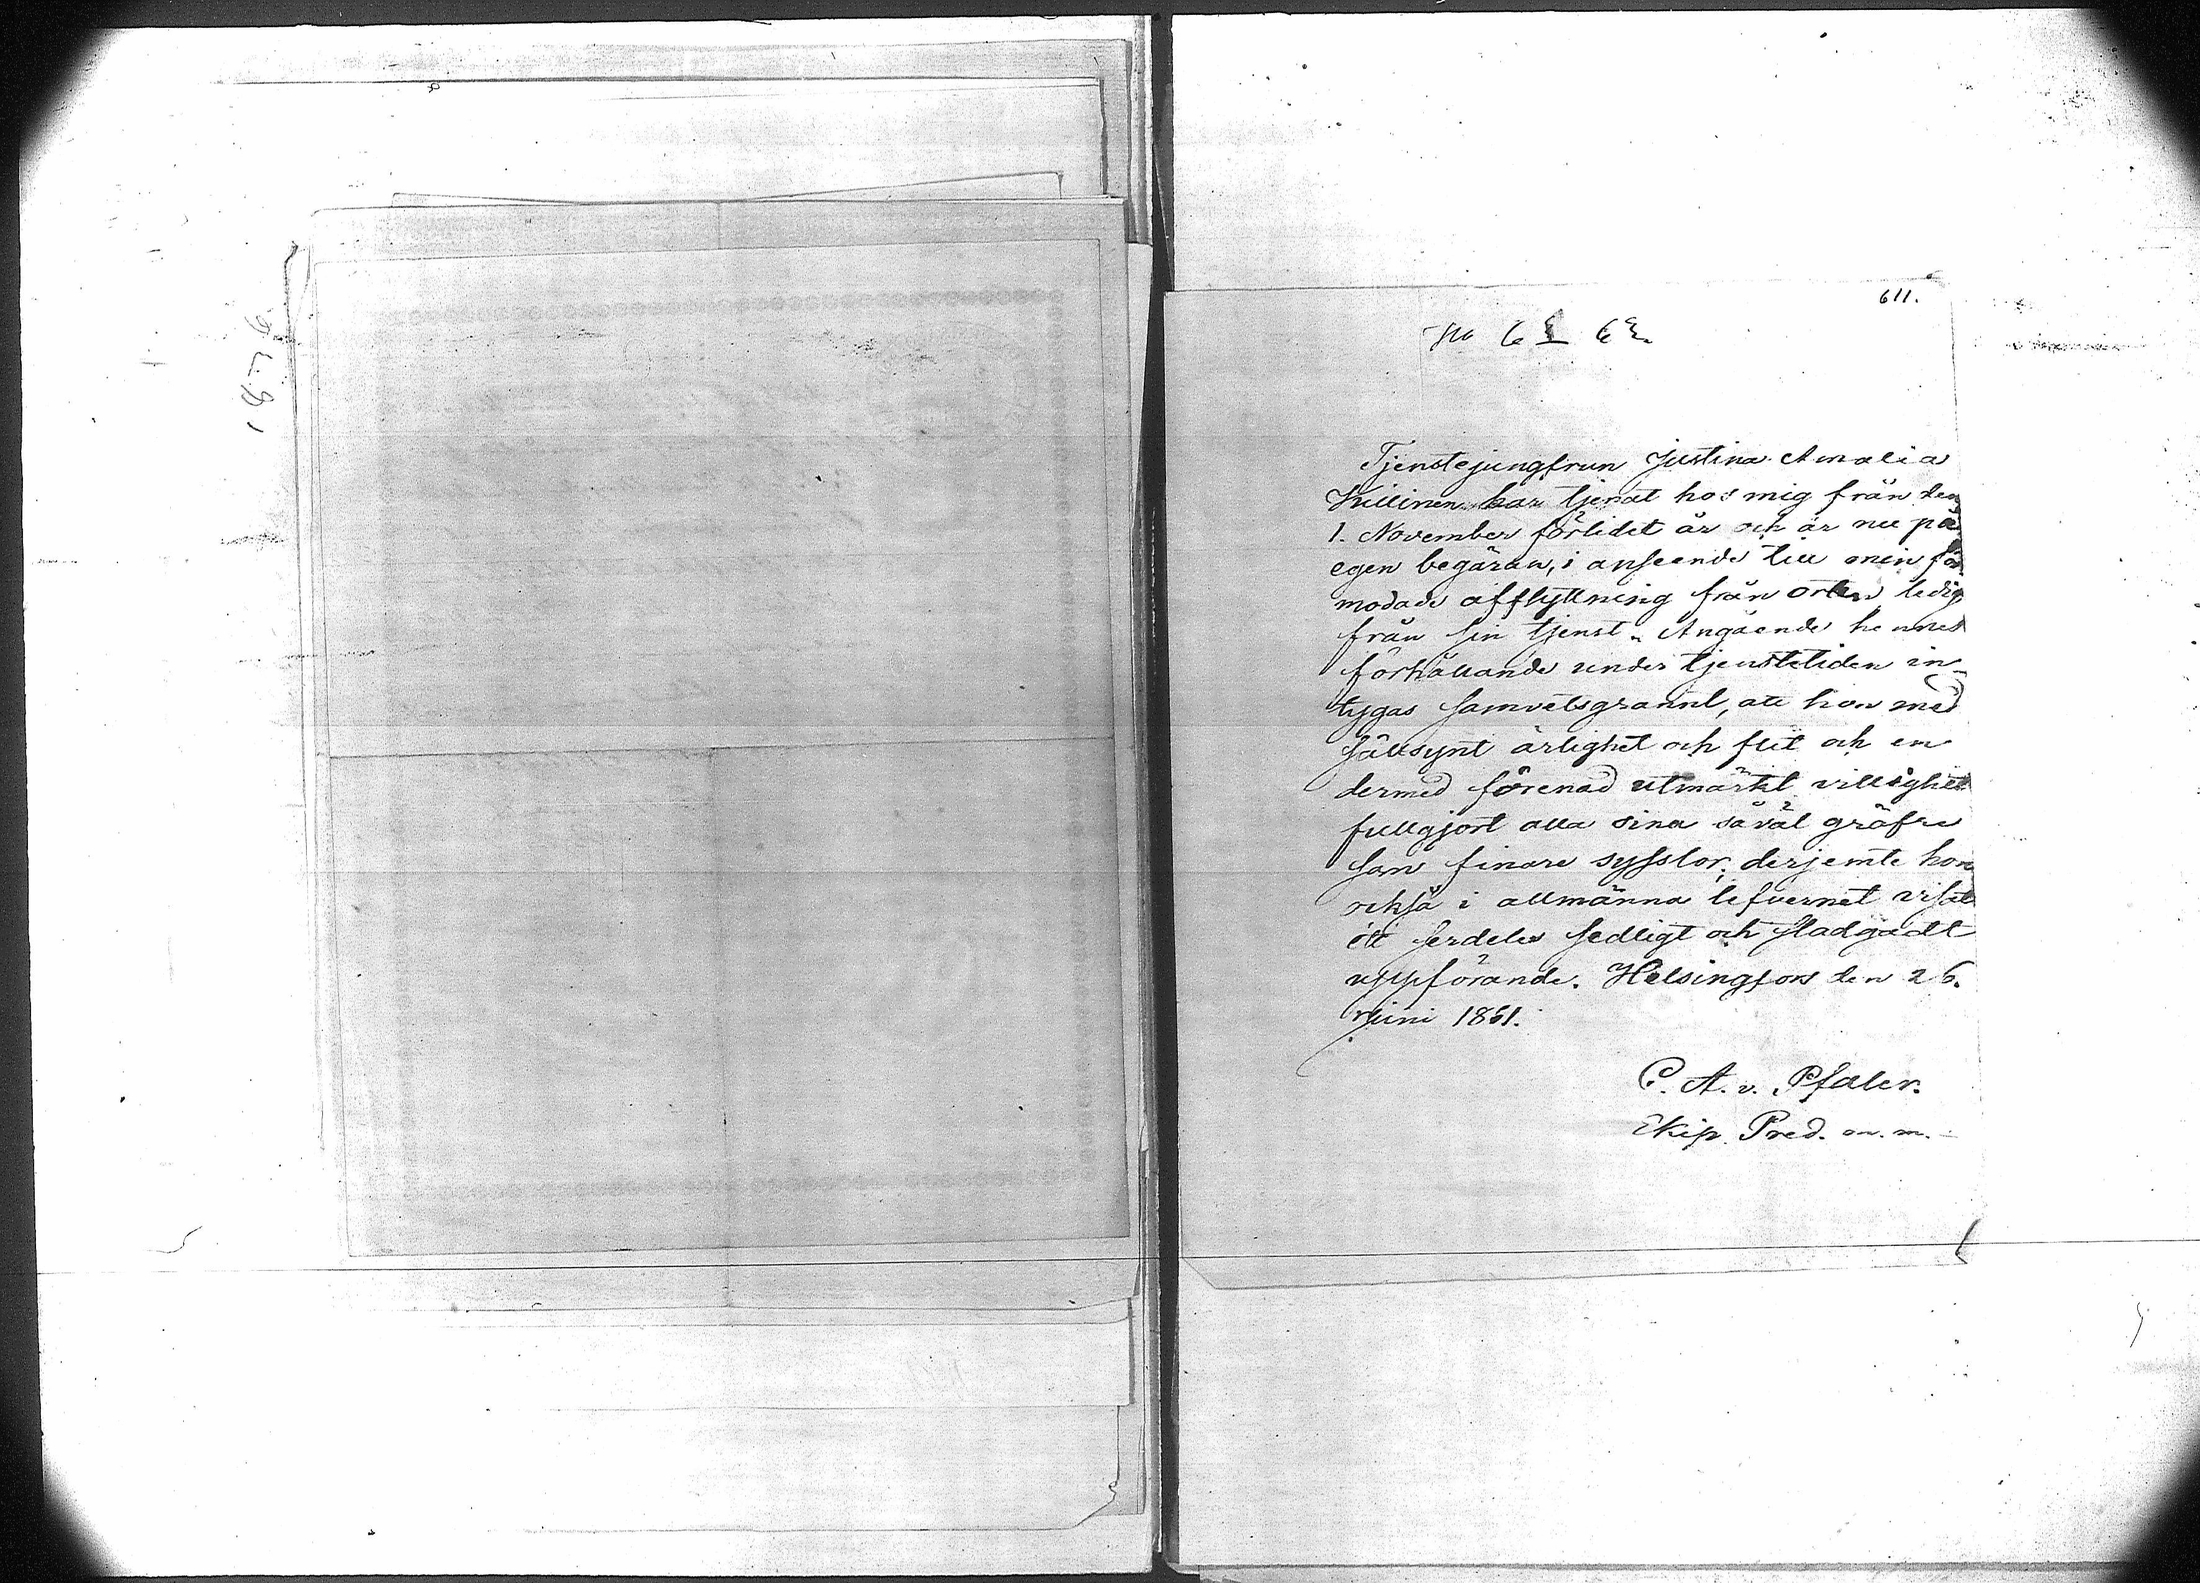 611.
No 6
Tjenstejungfrun Justina Amalia
har tjenat hos mig från den
1. November förlidet år och är nu på
egen begäran, i anseende till min för
modade afflyttning från orten ledig
från sin tjenst. Angående hennes
förhållande under tjenstetiden in-
tygas samvetsgrannt, att hon med
sällsynt ärlighet och flit och en
dermed förenad utmärkt villighet
fullgjort alla sina såväl gröfre
som finare sysslor; derjemte hon
också i allmänna lefvernet visat
ett serdeles sedligt och stadgadt
uppförande. Helsingfors den 26.
Juni 1861.
C. A. v. Pfaler.
Ekip. Pred. m. m.